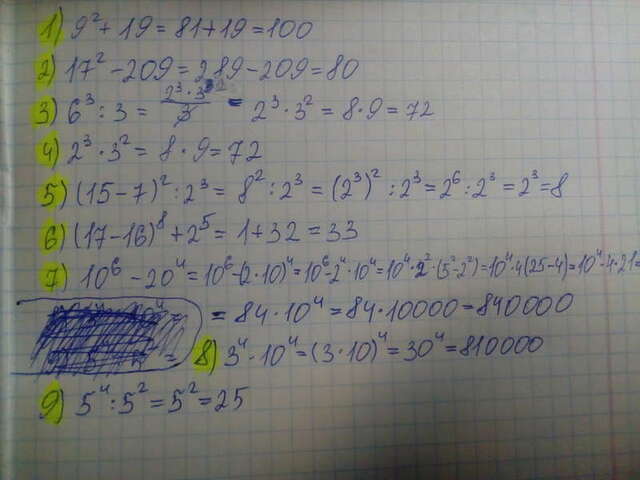 1) 9² + 19 = 81 + 19 = 100
2) 17² - 209 = 289 - 209 = 80
3) 6³ : 3 = 2³ · 3³ / 3 = 2³ · 3² = 8 · 9 = 72
4) 2³ · 3² = 8 · 9 = 72
5) (15 - 7)² : 2³ = 8² : 2³ = (2³)² : 2³ = 2⁶ : 2³ = 2³ = 8
6) (17 - 16)⁸ + 2⁵ = 1 + 32 = 33
7) 10⁶ - 20⁴ = 10⁶ - (2 · 10)⁴ = 10⁶ - 2⁴ · 10⁴ = 10⁴ · 2² · (5² - 2²) = 10⁴ · 4 (25 - 4) = 10⁴ · 4 · 21 =
= 84 · 10⁴ = 84 · 10000 = 840000
8) 3⁴ · 10⁴ = (3 · 10)⁴ = 30⁴ = 810000
9) 5⁴ : 5² = 5² = 25